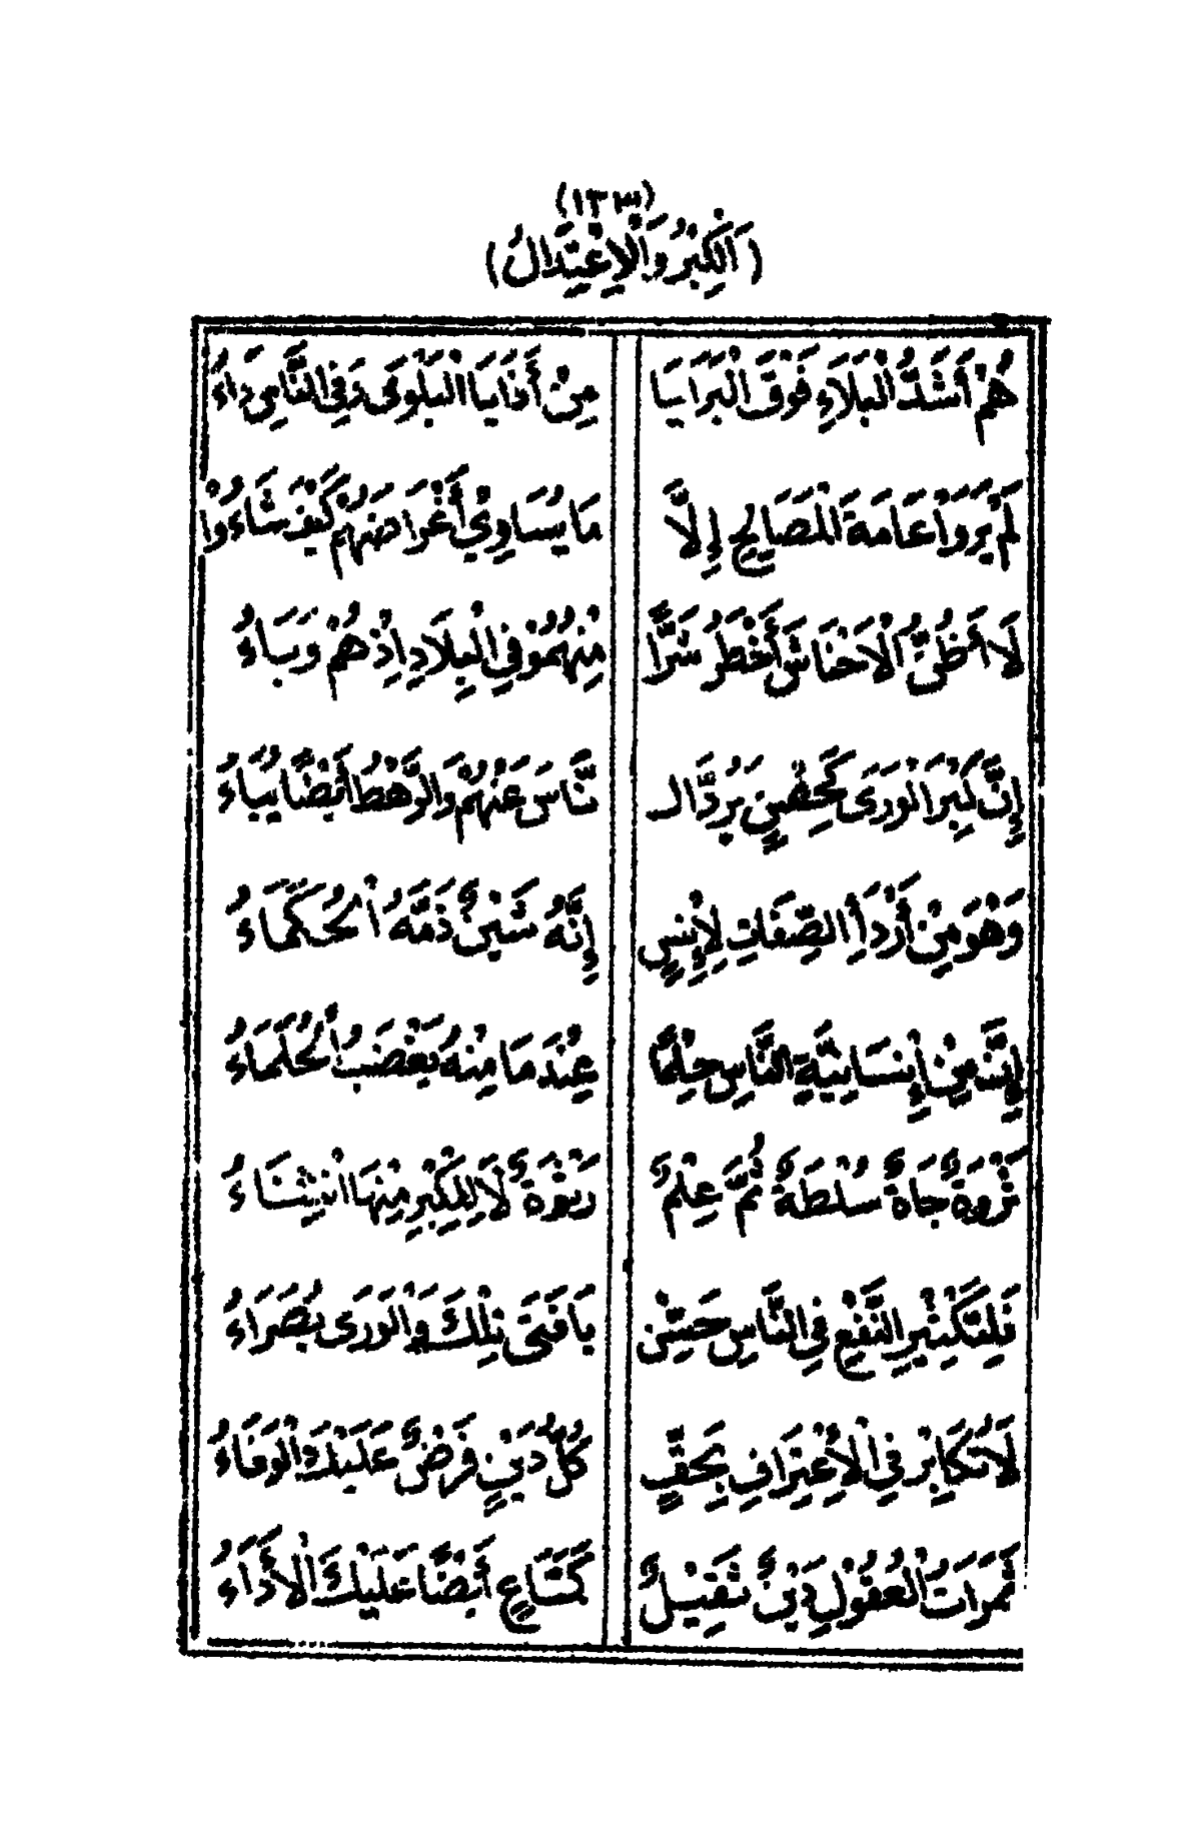 (١٣٣)
(اَلْكِبْرُ وَالْاِعْتِدَالُ)
هُمْ أَشَدُّ الْبَلَاءِ فَوْقَ الْبَرَايَا مِنْ أَذَايَا الْبَلْوَى وَفِى النَّاسِ دَاءُ
لَمْ يَرَوْا عَامَةَ الْمَصَالِحِ إِلَّا مَا يُسَاوِيْ أَغْرَاضَهُمْ كَيْفَ شَاءُوْا
لَا أَظُنُّ الْأَحْنَاشَ أَخْطَرُ شَرًّا مِنْهُمُوْ فِي الْبِلَادِ اِذْ هُمْ وَبَاءُ
إِنَّ كِبْرَ الْوَرَى كَحِصْنٍ يَرُدُّ الـ ـنَّاسَ عَنْهُمْ وَالرَّهْطُ أَيْضًا يُبَاءُ
وَهْوَ مِنْ أَرْدَأِ الصِّفَاتِ لِإِنْسٍ إِنَّهُ شَيْنٌ ذَمَّهُ الْحُكَمَاءُ
إِنَّ مِنْ إِنْسَانِيَّةِ النَّاسِ حِلْمًا عِنْدَ مَا مِنْهُ يَغْضَبُ الْحُلَمَاءُ
ثَرْوَةٌ جَاهٌ سُلْطَةٌ ثُمَّ عِلْمٌ رَبْوَةٌ لَا لِلْكِبْرِ مِنْهَا انْثِنَاءُ
فَلِتَكْثِيْرِ النَّفْعِ فِي النَّاسِ حَسِّنْ يَا فَتَى تِلْكَ وَالْوَرَى بُصَرَاءُ
لَا تُكَابِرْ فِي الْاِعْتِرَافِ بِحَقٍّ كُلُّ دَيْنٍ فَرْضٌ عَلَيْكَ الْوَفَاءُ
ثَمَرَاتُ الْعُقُوْلِ دَيْنٌ ثَقِيْلٌ كَمَتَاعٍ أَيْضًا عَلَيْكَ الْأَدَاءُ